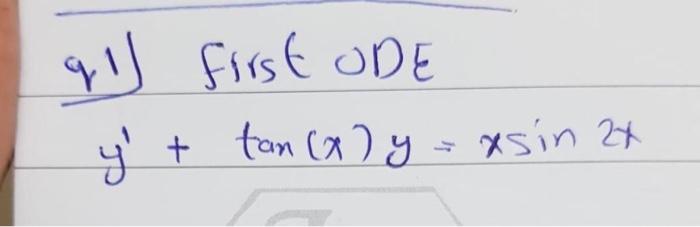 q1) first ODE
y' + tan(x) y = x sin 2x